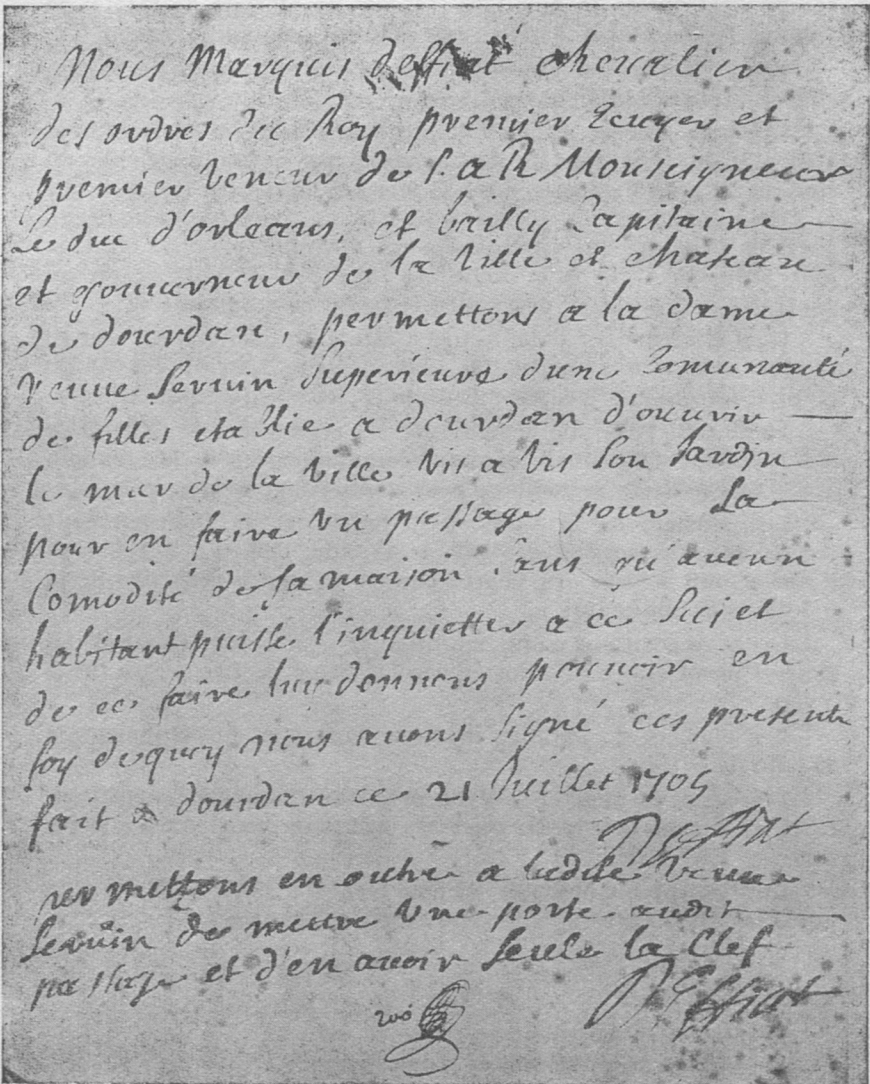 Nous Marquis deffiat chevalier
des ordres du Roy premier Ecuyer et
premier veneur de S. a R Monseigneur
Le duc d'orleans, et bailly Capitaine
et gouverneur de la Ville et chateau
de dourdan, permettons a la dame
veuue Seruin Superieure dune Comunauté
de filles etablie a dourdan d'ouurir
le mur de la ville vis a vis Son Jardin
pour en faire vn passage pour La
Comodité de sa maison Sans qu'aucun
habitant puisse l'inquietter a ce Sujet
de ce faire luy donnons pouuoir en
foy dequoy nous auons Signé ces presents
fait a dourdan ce 21 Juillet 1705
Deffiat
permettons en outre a ladite Veuue
Seruin de mettre vne porte audit
passage et d'en auoir Seule la Clef
Deffiat